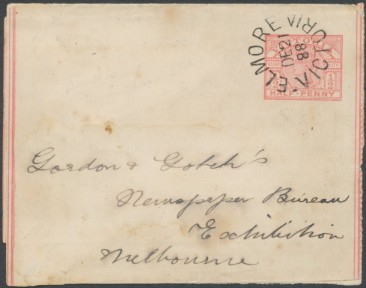 ELMORE VICTORIA
DE 21
88
HALF PENNY
Gordon & Gotch's
Newspaper Bureau
Exhibition
Melbourne